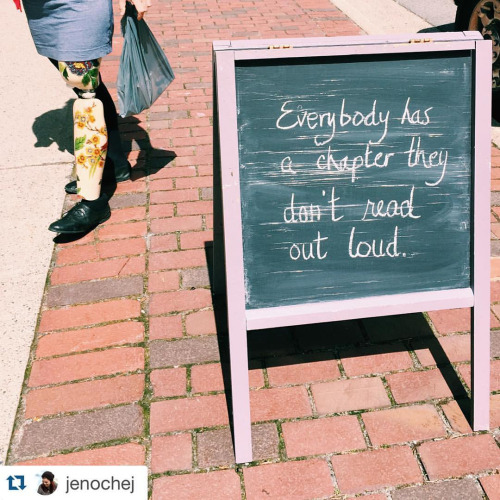 Everybody has
a chapter they
don't read
out loud.
jenochej